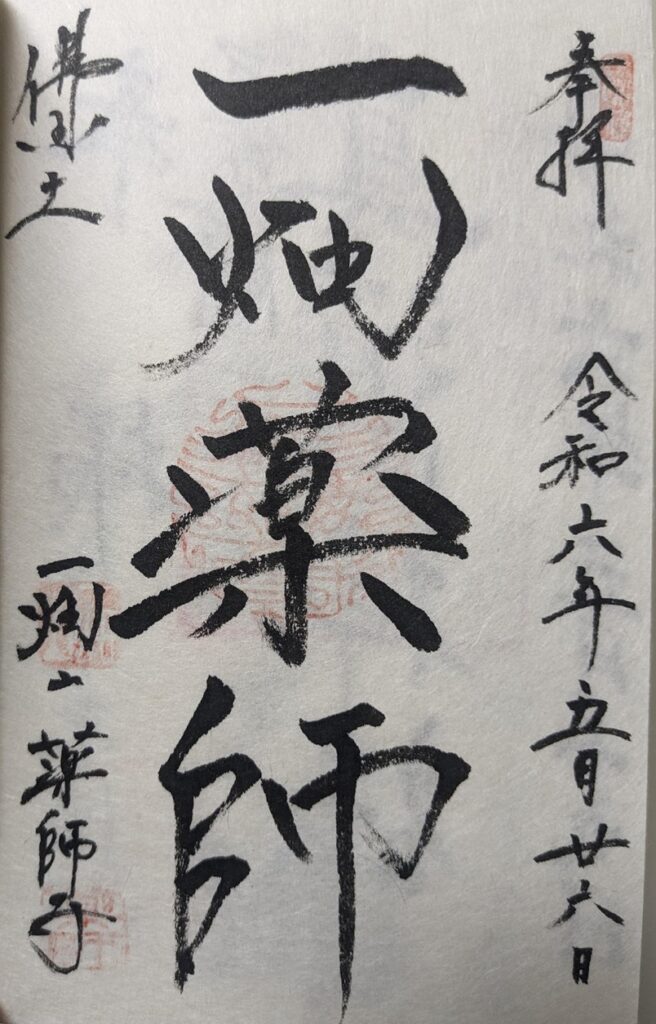 奉拝 令和六年五月廿六日
一畑薬師
佛国土
一畑山薬師寺